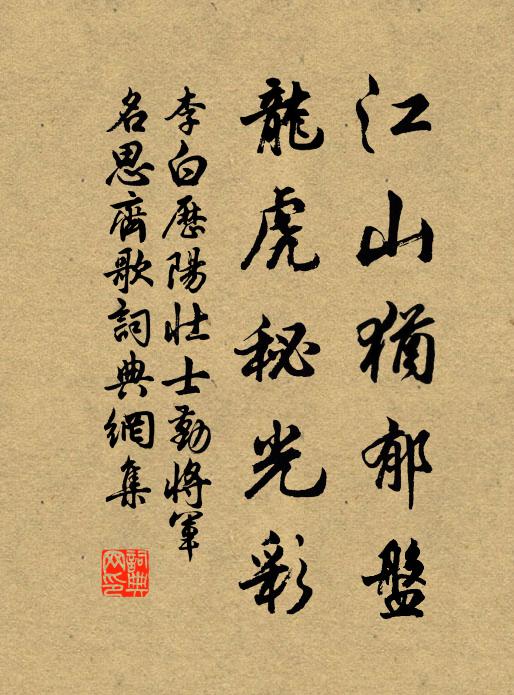 江山猶郁盤
龍虎秘光彩
李白歷陽壯士勤將軍
名思齊歌詞典網集
詞典網印